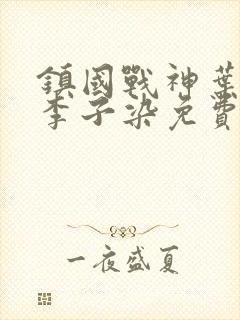 鎮國戰神葉
李子染免費
一夜盛夏